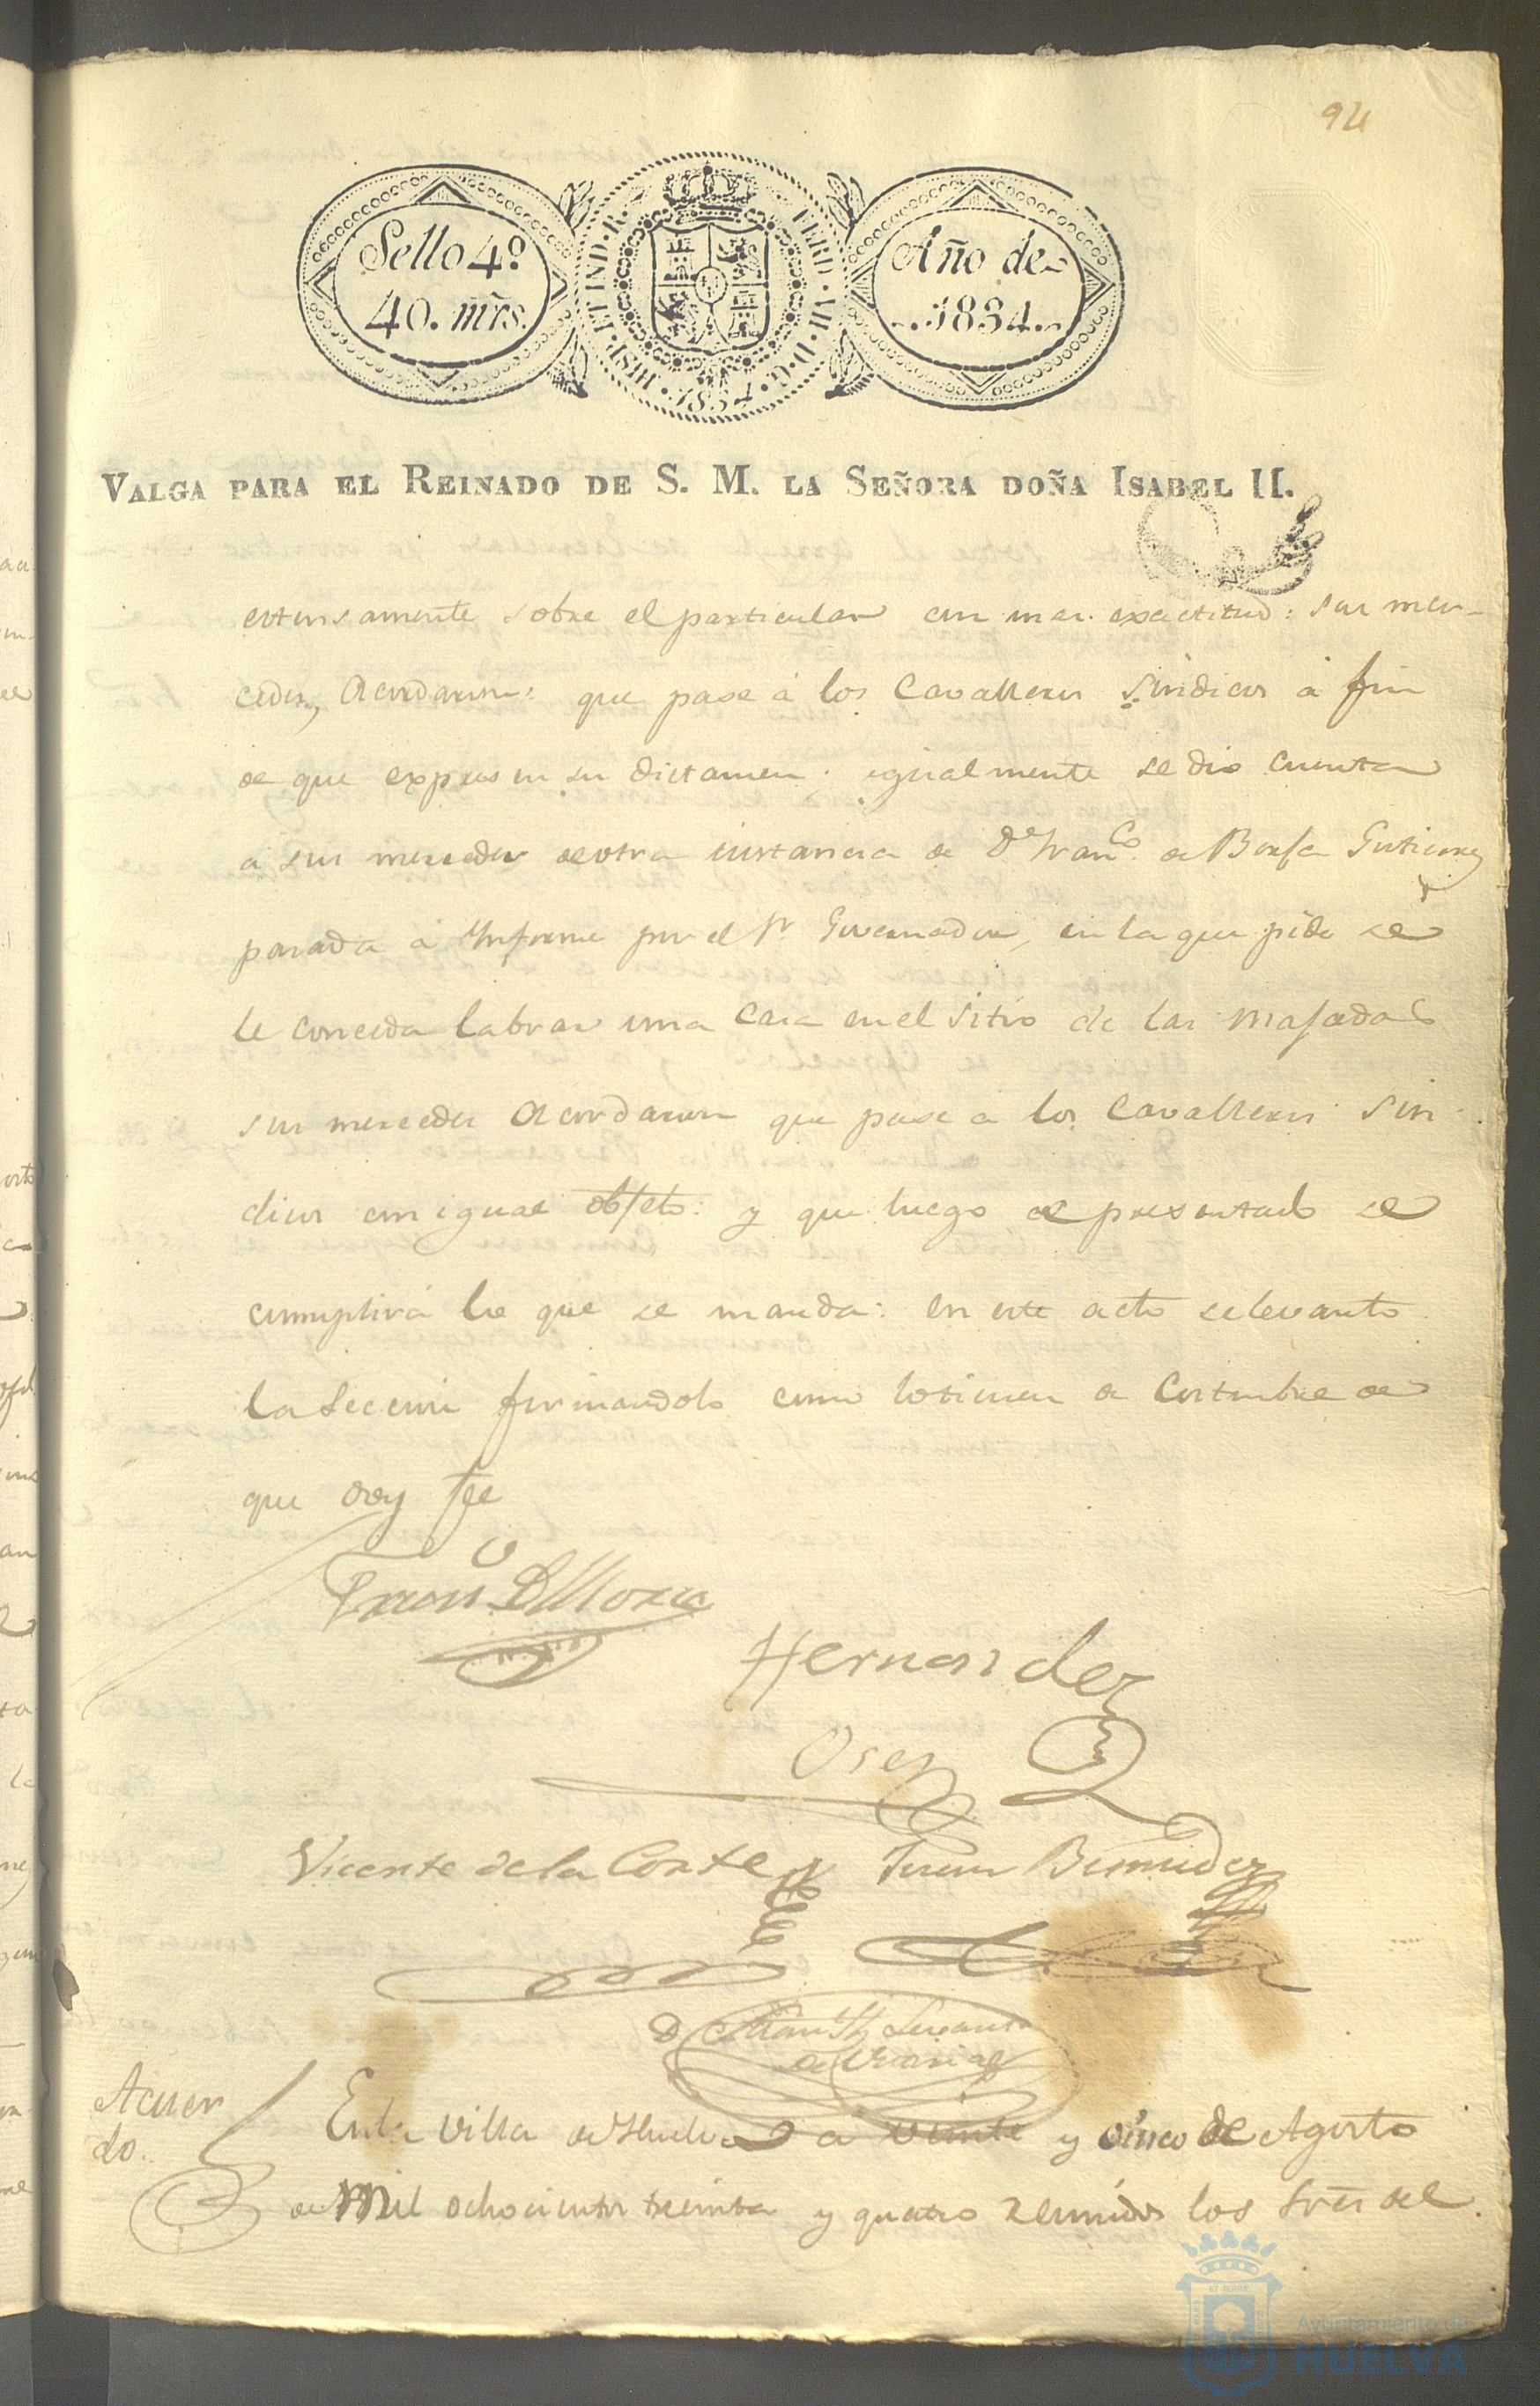 94
Sello 4º
40. mrs.
HISP. ET IND. R. FERD. VII. D. G. 1834.
Año de
1834.
VALGA PARA EL REINADO DE S. M. LA SEÑORA DOÑA ISABEL II.
estensamente sobre el particular con mas exactitud: sus mer-
cedes, Acordaron: que pase á los Cavalleros Sindicos á fin
de que expresen su dictamen: igualmente se dio cuenta
á sus mercedes de otra instancia de Dn Franco de Borja Gutierrez
pasada á Informe por el Sr Governador, en la que pide se
le conceda labrar una Casa en el Sitio de las Majadas
sus mercedes Acordaron que pase a los Cavalleros Sin
dicos con igual objeto: y que luego de presentado se
cumplirá lo que se manda: en este acto se levanto
la Seccion firmandolo como lo tienen de Costumbre de
que doy fee
Franco D Mora
Hernandez
Vicente de la Corte
Bermudez
Acuer
do.
En la Villa de Huelva á veinte y cinco de Agosto
de Mil ochocientos treinta y quatro reunidos los Sres del
Ayuntamiento de
HUELVA